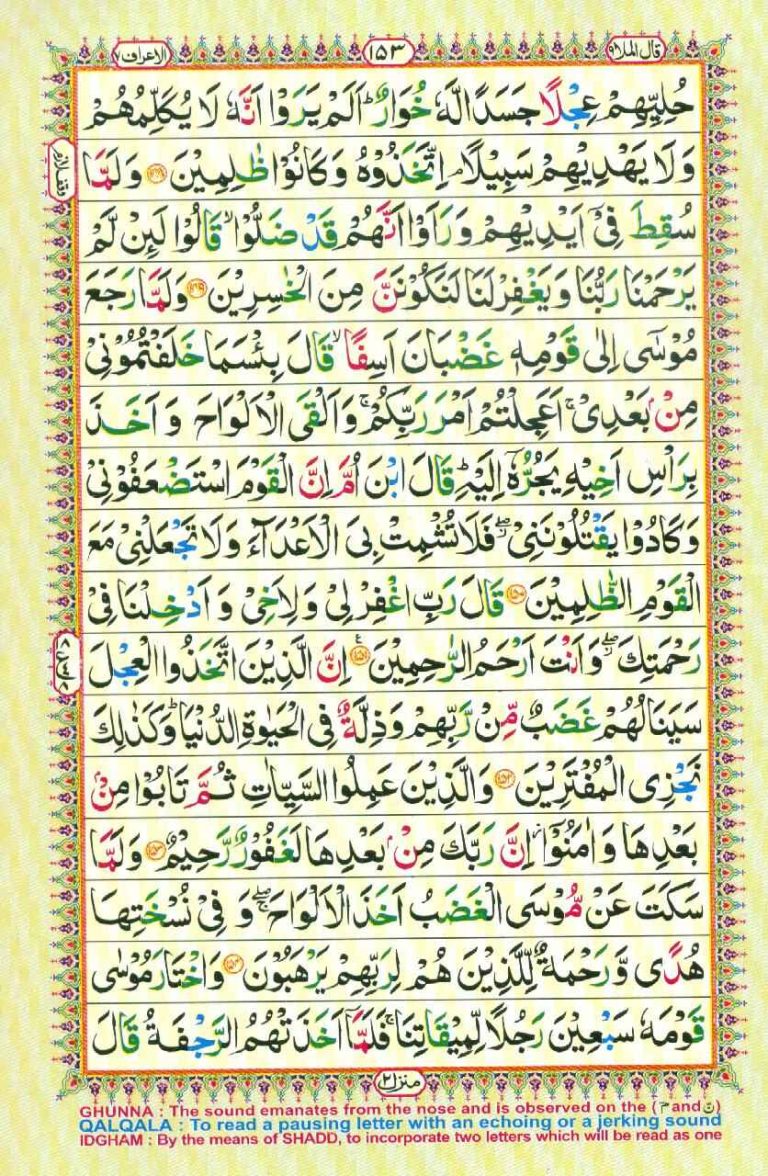 قال الملا ٩
١٥٣
الاعراف ٧
حُلِيِّهِمْ عِجْلًا جَسَدًا لَّهٗ خُوَارٌ ؕ اَلَمْ يَرَوْا اَنَّهٗ لَا يُكَلِّمُهُمْ
وَلَا يَهْدِيْهِمْ سَبِيْلًا ۘ اِتَّخَذُوْهُ وَكَانُوْا ظٰلِمِيْنَ ﴿۱۴۸﴾ وَلَمَّا
سُقِطَ فِيْۤ اَيْدِيْهِمْ وَرَاَوْا اَنَّهُمْ قَدْ ضَلُّوْا ۙ قَالُوْا لَئِنْ لَّمْ
يَرْحَمْنَا رَبُّنَا وَيَغْفِرْ لَنَا لَنَكُوْنَنَّ مِنَ الْخٰسِرِيْنَ ﴿۱۴۹﴾ وَلَمَّا رَجَعَ
مُوْسٰۤى اِلٰى قَوْمِهٖ غَضْبَانَ اَسِفًا ۙ قَالَ بِئْسَمَا خَلَفْتُمُوْنِيْ
مِنْۢ بَعْدِيْ ۚ اَعَجِلْتُمْ اَمْرَ رَبِّكُمْ ۚ وَاَلْقَى الْاَلْوَاحَ وَاَخَذَ
بِرَاْسِ اَخِيْهِ يَجُرُّهٗۤ اِلَيْهِ ؕ قَالَ ابْنَ اُمَّ اِنَّ الْقَوْمَ اسْتَضْعَفُوْنِيْ
وَكَادُوْا يَقْتُلُوْنَنِيْ ۖ فَلَا تُشْمِتْ بِيَ الْاَعْدَآءَ وَلَا تَجْعَلْنِيْ مَعَ
الْقَوْمِ الظّٰلِمِيْنَ ﴿۱۵۰﴾ قَالَ رَبِّ اغْفِرْ لِيْ وَلِاَخِيْ وَاَدْخِلْنَا فِيْ
رَحْمَتِكَ ۖ وَاَنْتَ اَرْحَمُ الرّٰحِمِيْنَ ﴿۱۵۱﴾ اِنَّ الَّذِيْنَ اتَّخَذُوا الْعِجْلَ
سَيَنَالُهُمْ غَضَبٌ مِّنْ رَّبِّهِمْ وَذِلَّةٌ فِي الْحَيٰوةِ الدُّنْيَا ؕ وَكَذٰلِكَ
نَجْزِي الْمُفْتَرِيْنَ ﴿۱۵۲﴾ وَالَّذِيْنَ عَمِلُوا السَّيِّاٰتِ ثُمَّ تَابُوْا مِنْۢ
بَعْدِهَا وَاٰمَنُوْۤا ۫ اِنَّ رَبَّكَ مِنْۢ بَعْدِهَا لَغَفُوْرٌ رَّحِيْمٌ ﴿۱۵۳﴾ وَلَمَّا
سَكَتَ عَنْ مُّوْسَى الْغَضَبُ اَخَذَ الْاَلْوَاحَ ۖ وَفِيْ نُسْخَتِهَا
هُدًى وَّرَحْمَةٌ لِّلَّذِيْنَ هُمْ لِرَبِّهِمْ يَرْهَبُوْنَ ﴿۱۵۴﴾ وَاخْتَارَ مُوْسٰى
قَوْمَهٗ سَبْعِيْنَ رَجُلًا لِّمِيْقَاتِنَا ۚ فَلَمَّاۤ اَخَذَتْهُمُ الرَّجْفَةُ قَالَ
منزل ٢
GHUNNA : The sound emanates from the nose and is observed on the (م and ن)
QALQALA : To read a pausing letter with an echoing or a jerking sound
IDGHAM : By the means of SHADD, to incorporate two letters which will be read as one